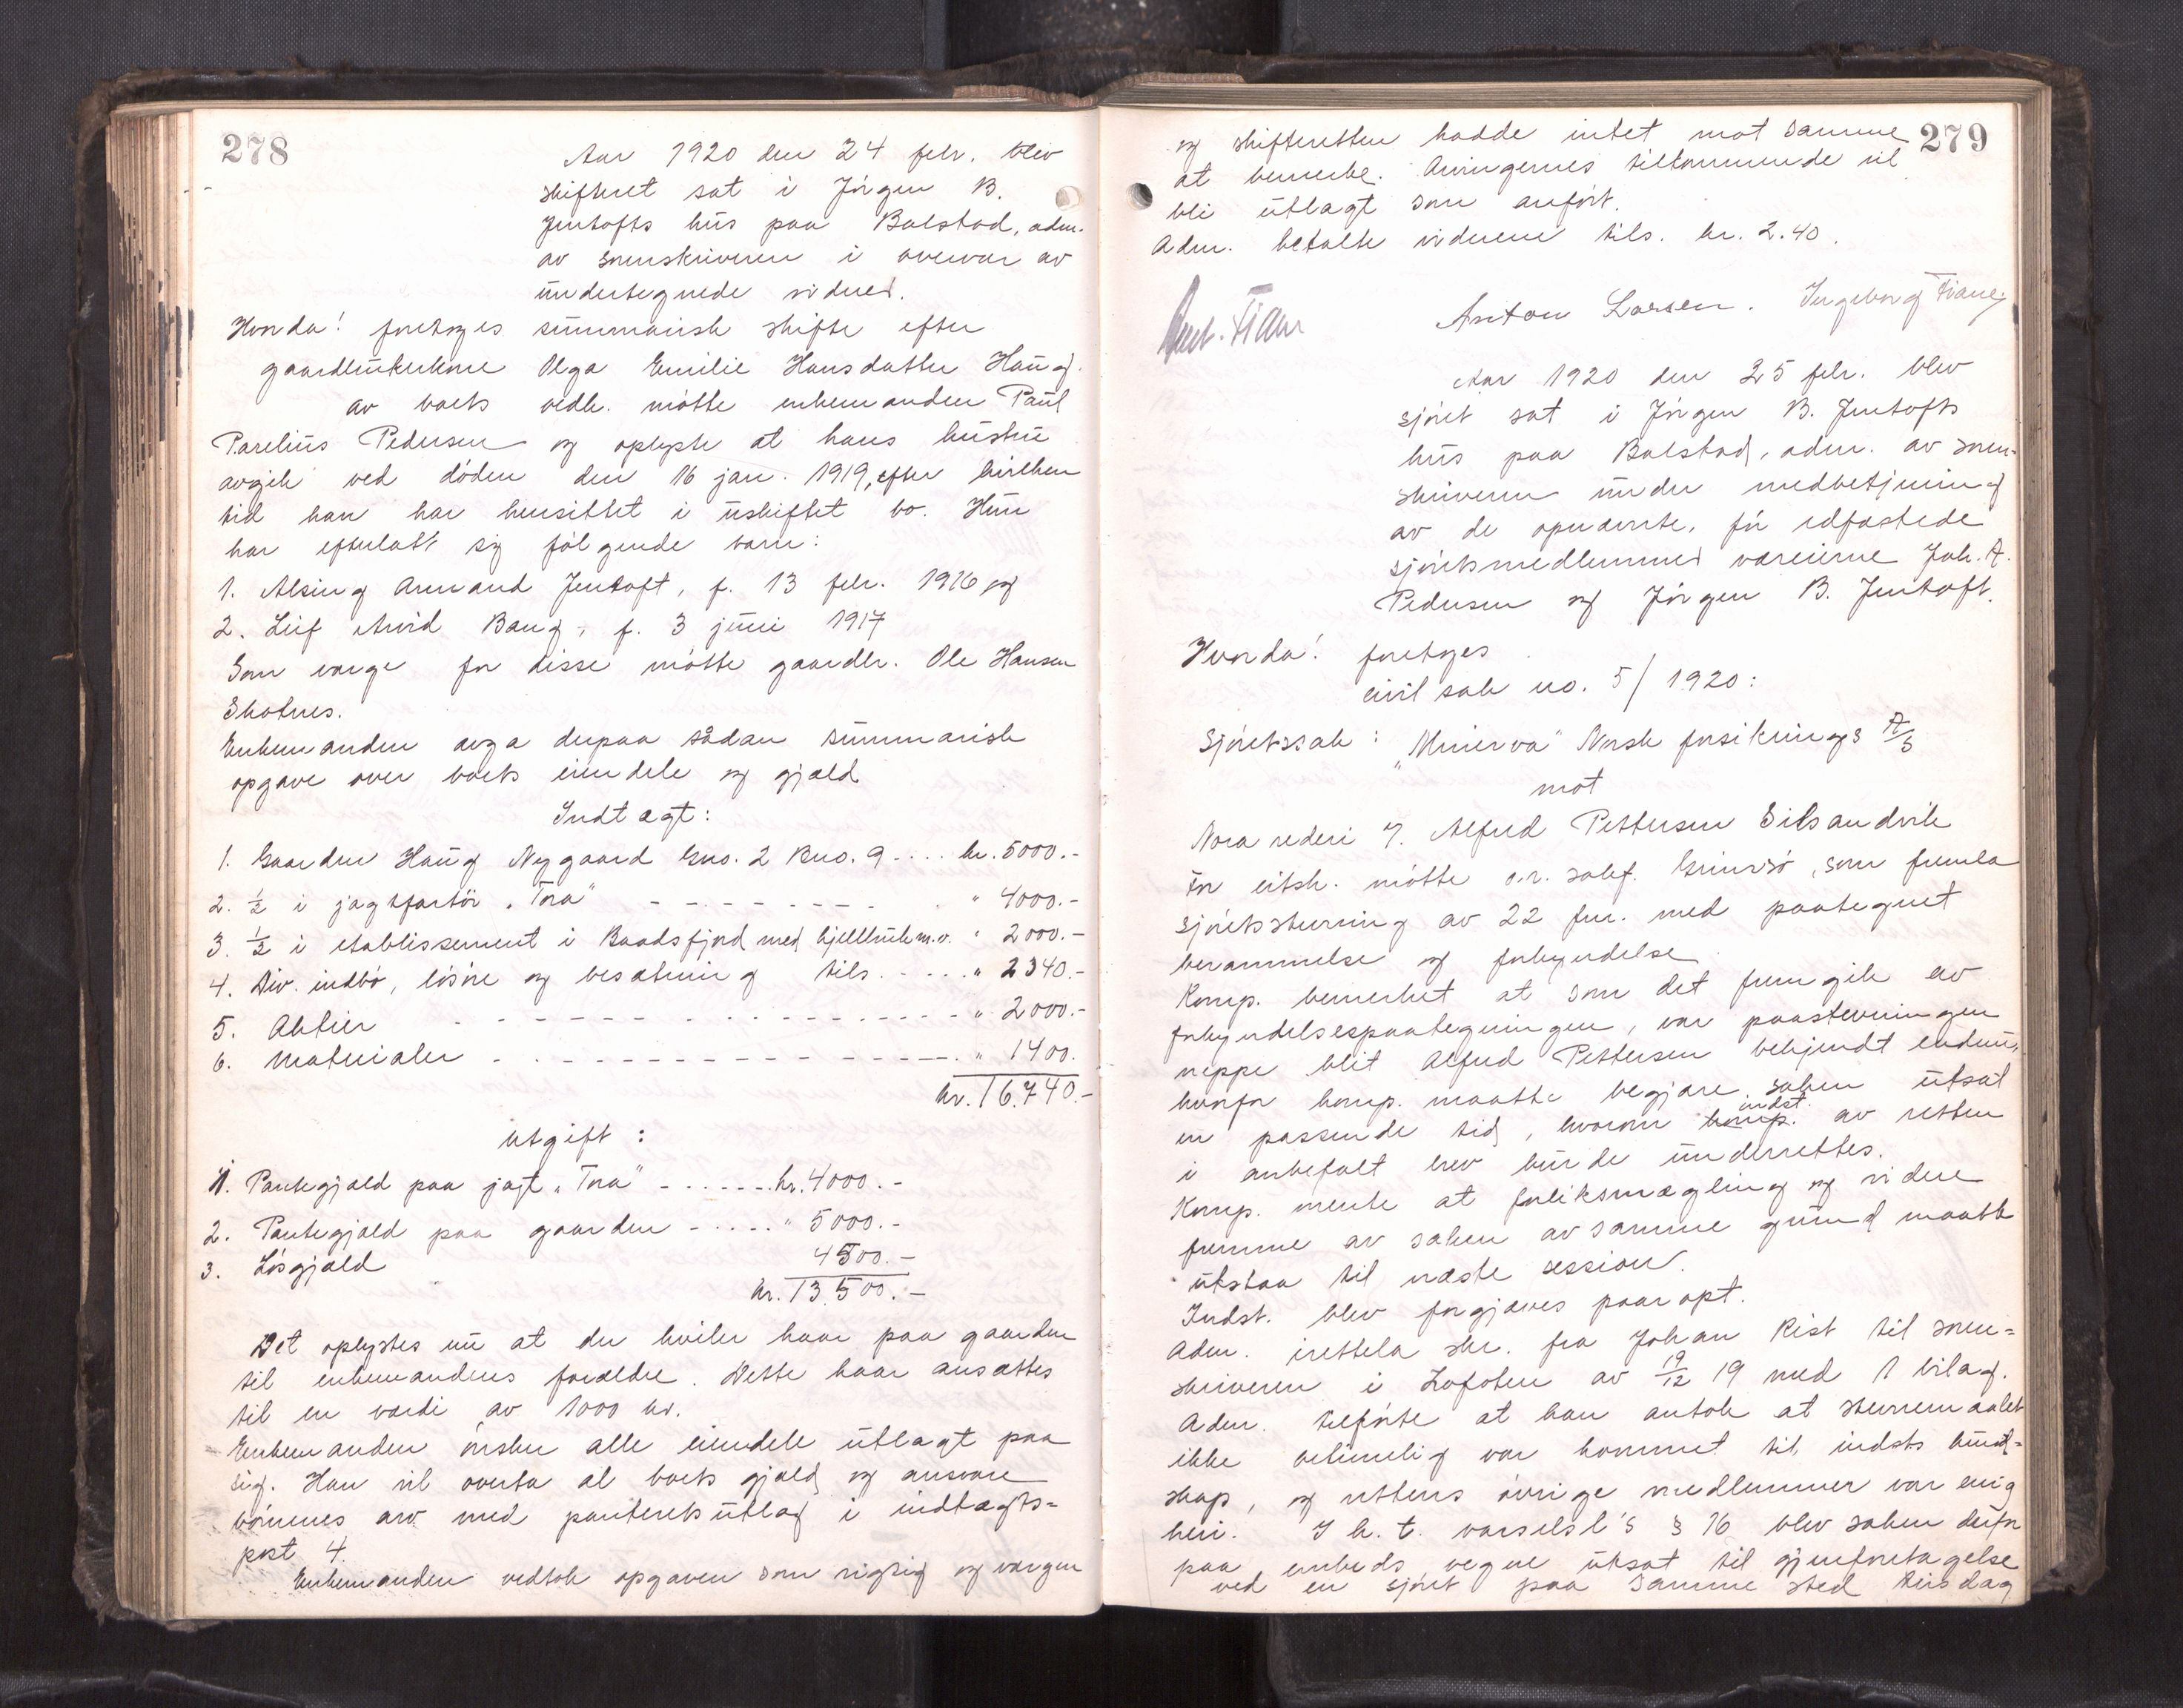 278
Aar 1920 den 24 febr. blev
skifteret sat i Jörgen B.
Jentofts hus paa Balstad, adm.
av sorenskriveren i overvær av
undertegnede vidner.
Hvorda! foretoges summarisk skifte efter
gaardbrukerkone Olga Emilie Hansdatter Haug.
Av boets vedk. mötte enkemanden Paul
Parelius Pedersen og oplyste at hans hustru
avgik ved döden den 16 jan. 1919, efter hvilken
tid han har hensittet i uskiftet bo. Hun
har efterlatt sig fölgende barn:
1. Alsing Armand Jentoft, f. 13 febr. 1916 og
2. Leif Arvid Baug, f. 3 juni 1917
Som verge for disse mötte gaardbr. Ole Hansen
Skotnes.
Enkemanden avga derpaa sådan summarisk
opgave over boets eiendele og gjæld
Indtægt:
1. Gaarden Haug Nygaard Gno. 2 Bno. 9 .... kr. 5000.-
2. ½ i jagtfartöi „Tora" - - - - - - - - " 4000.-
3. ½ i etablissement i Baadsfjord med hjellbruk m.v. " 2000.-
4. Div. indbo, lösöre og besætning tils. - - .. " 2340.-
5. Aktier - - - - - - - - - - - - - " 2000.-
6. Materialer - - - - - - - - - - - - " 1400.
kr. 16.740.-
Utgift:
1. Pantegjæld paa jagt „Tora" - - - - - kr. 4000.-
2. Pantegjæld paa gaarden - - - - - " 5000.-
3. Lösgjæld 4500.-
kr. 13.500.-
Det oplystes nu at der hviler kaar paa gaarden
til enkemandens forældre. Dette kaar ansættes
til en værdi av 1000 kr.
Enkemanden önsker alle eiendele utlagt paa
sig. Han vil overta al boets gjæld og ansvare
börnenes arv med panteretsutlæg i indtægts-
post 4.
Enkemanden vedtok opgaven som rigtig og vergen
279
og skifteretten hadde intet mot samme
at bemerke. Arvingernes tilkommende vil
bli utlagt som anfört.
Adm. betalte vidnene tils. kr. 2.40.
Anton Larsen. Ingeborg
Aar 1920 den 25 febr. blev
sjöret sat i Jörgen B. Jentofts
hus paa Balstad, adm. av soren-
skriveren under medbetjening
av de opnævnte, för edfæstede
sjöretsmedlemmer væreierne Joh. A.
Pedersen og Jörgen B. Jentoft.
Hvorda! foretoges
civil sak no. 5/1920:
Sjöretssak: „Minerva" Norsk forsikrings A/S
mot
Nora rederi v. Alfred Pettersen Silsandvik
For citsk. mötte o.r. sakf. Grimsö, som fremla
sjöretsstevning av 22 jan. med paategnet
berammelse og forkyndelse
Komp. bemerket at som det fremgik av
forkyndelsespaategningen, var paastevningen
neppe blit Alfred Pettersen bekjendt endnu,
hvorfor komp. maatte begjære saken utsat
en passende tid, hvorom indst. av retten
i anbefalt brev burde underrettes.
Komp. mente at forliksmægling og videre
fremme av saken av samme grund maatte
utstaa til næste session.
Indst. blev forgjæves paaropt.
Adm. irettela skr. fra Johan Rist til soren-
skriveren i Lofoten av 19/12 19 med 1 bilag.
Adm. tilförte at han antok at stevnemaalet
ikke betimelig var kommet til indsts kund-
skap, og rettens övrige medlemmer var enig
heri. I h. t. varselsl's § 16 blev saken derfor
paa embeds vegne utsat til gjenforetagelse
ved en sjöret paa samme sted tirsdag